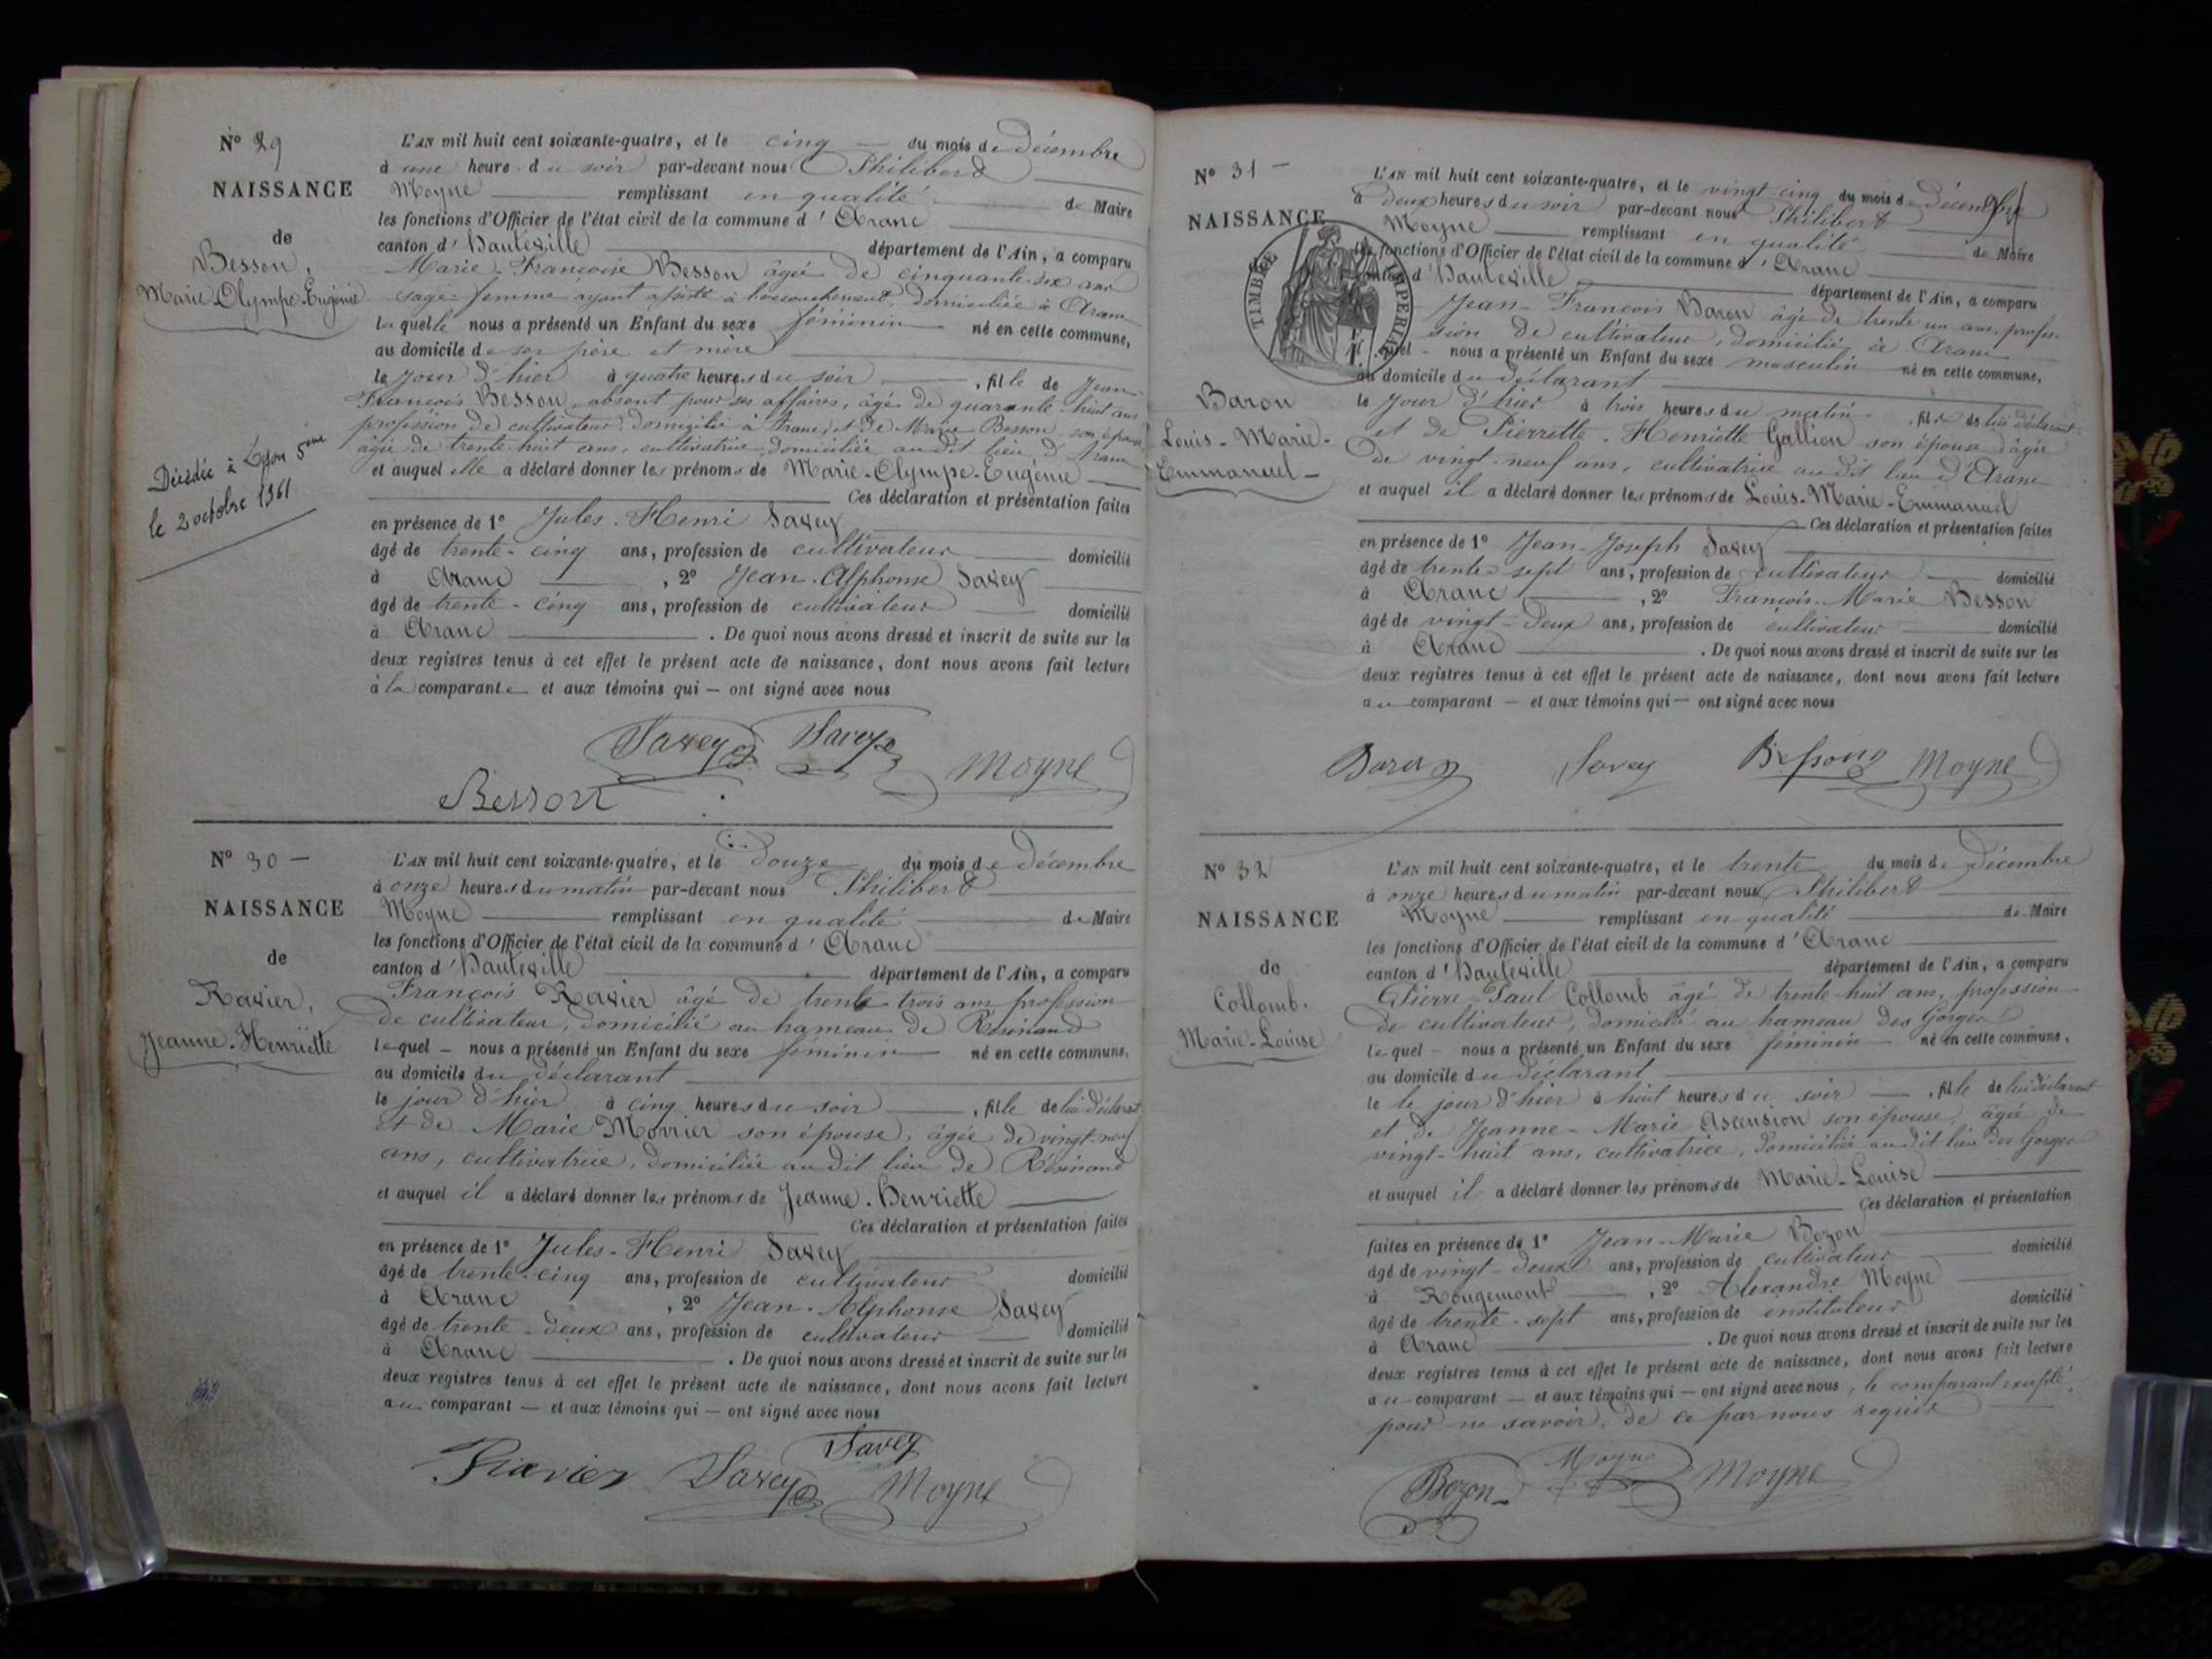 N° 29
NAISSANCE
de
Besson,
Marie-Olympe-Eugénie
Décédée à Lyon 5ème
le 2 octobre 1961
L'AN mil huit cent soixante-quatre, et le cinq du mois de Décembre
à une heure du soir par-devant nous Philibert
Moyne remplissant en qualité de Maire
les fonctions d'Officier de l'état civil de la commune d'Aranc
canton d'Hauteville département de l'Ain, a comparu
Marie-Françoise Besson âgée de cinquante-six ans
sage-femme ayant assisté à l'accouchement, domiciliée à Aranc
laquelle nous a présenté un Enfant du sexe féminin né en cette commune,
au domicile de ses père et mère
le jour d'hier à quatre heures du soir, fille de Jean-
François Besson, absent pour ses affaires, âgé de quarante-huit ans
profession de cultivateur, domicilié à Aranc, et de Marie Besson, son épouse
âgée de trente-huit ans, cultivatrice, domiciliée audit lieu d'Aranc
et auquel elle a déclaré donner les prénoms de Marie-Olympe-Eugénie
Ces déclaration et présentation faites
en présence de 1° Jules-Henri Savey
âgé de trente-cinq ans, profession de cultivateur domicilié
à Aranc, 2° Jean-Alphonse Savey
âgé de trente-cinq ans, profession de cultivateur domicilié
à Aranc. De quoi nous avons dressé et inscrit de suite sur les
deux registres tenus à cet effet le présent acte de naissance, dont nous avons fait lecture
à la comparante et aux témoins qui — ont signé avec nous
Savey Savey Moyne
Besson
N° 30 —
NAISSANCE
de
Ravier,
Jeanne-Henriette
L'AN mil huit cent soixante-quatre, et le douze du mois de Décembre
à onze heures du matin par-devant nous Philibert
Moyne remplissant en qualité de Maire
les fonctions d'Officier de l'état civil de la commune d'Aranc
canton d'Hauteville département de l'Ain, a comparu
François Ravier âgé de trente-trois ans profession
de cultivateur, domicilié au hameau de Résinand
lequel — nous a présenté un Enfant du sexe féminin né en cette commune,
au domicile du déclarant
le jour d'hier à cinq heures du soir, fille de lui déclarant
et de Marie Morrier son épouse, âgée de vingt-neuf
ans, cultivatrice, domiciliée au dit lieu de Résinand
et auquel il a déclaré donner les prénoms de Jeanne-Henriette
Ces déclaration et présentation faites
en présence de 1° Jules-Henri Savey
âgé de trente-cinq ans, profession de cultivateur domicilié
à Aranc, 2° Jean-Alphonse Savey
âgé de trente-deux ans, profession de cultivateur domicilié
à Aranc. De quoi nous avons dressé et inscrit de suite sur les
deux registres tenus à cet effet le présent acte de naissance, dont nous avons fait lecture
au comparant — et aux témoins qui — ont signé avec nous
Ravier Savey Savey Moyne
N° 31 —
NAISSANCE
TIMBRE IMPERIAL
Baron
Louis-Marie-
Emmanuel —
L'AN mil huit cent soixante-quatre, et le vingt-cinq du mois de Décembre
à deux heures du soir par-devant nous Philibert
Moyne remplissant en qualité de Maire
les fonctions d'Officier de l'état civil de la commune d'Aranc
canton d'Hauteville département de l'Ain, a comparu
Jean-François Baron âgé de trente-un ans, profes-
sion de cultivateur, domicilié à Aranc
lequel — nous a présenté un Enfant du sexe masculin né en cette commune,
au domicile du déclarant
le jour d'hier à trois heures du matin, fils de lui déclarant
et de Pierrette-Henriette Gallion son épouse âgée
de vingt-neuf ans, cultivatrice au dit lieu d'Aranc
et auquel il a déclaré donner les prénoms de Louis-Marie-Emmanuel
Ces déclaration et présentation faites
en présence de 1° Jean-Joseph Savey
âgé de trente-sept ans, profession de cultivateur domicilié
à Aranc, 2° François-Marie Besson
âgé de vingt-deux ans, profession de cultivateur domicilié
à Aranc. De quoi nous avons dressé et inscrit de suite sur les
deux registres tenus à cet effet le présent acte de naissance, dont nous avons fait lecture
au comparant — et aux témoins qui — ont signé avec nous
Baron Savey Besson Moyne
N° 32
NAISSANCE
de
Collomb.
Marie-Louise
L'AN mil huit cent soixante-quatre, et le trente du mois de Décembre
à onze heures du matin par-devant nous Philibert
Moyne remplissant en qualité de Maire
les fonctions d'Officier de l'état civil de la commune d'Aranc
canton d'Hauteville département de l'Ain, a comparu
Pierre-Paul Collomb âgé de trente-huit ans, profession
de cultivateur, domicilié au hameau des Gorges
lequel — nous a présenté un Enfant du sexe féminin né en cette commune,
au domicile du déclarant
le le jour d'hier à huit heures du soir — , fille de lui déclarant
et de Jeanne-Marie Ascension son épouse, âgée de
vingt-huit ans, cultivatrice, domiciliée au dit lieu des Gorges
et auquel il a déclaré donner les prénoms de Marie-Louise
Ces déclaration et présentation
faites en présence de 1° Jean-Marie Bozon
âgé de vingt-deux ans, profession de cultivateur domicilié
à Rougemont, 2° Alexandre Moyne
âgé de trente-sept ans, profession de instituteur domicilié
à Aranc. De quoi nous avons dressé et inscrit de suite sur les
deux registres tenus à cet effet le présent acte de naissance, dont nous avons fait lecture
au comparant — et aux témoins qui — ont signé avec nous, le comparant excepté,
pour ne savoir, de ce par nous requis
Bozon Moyne Moyne